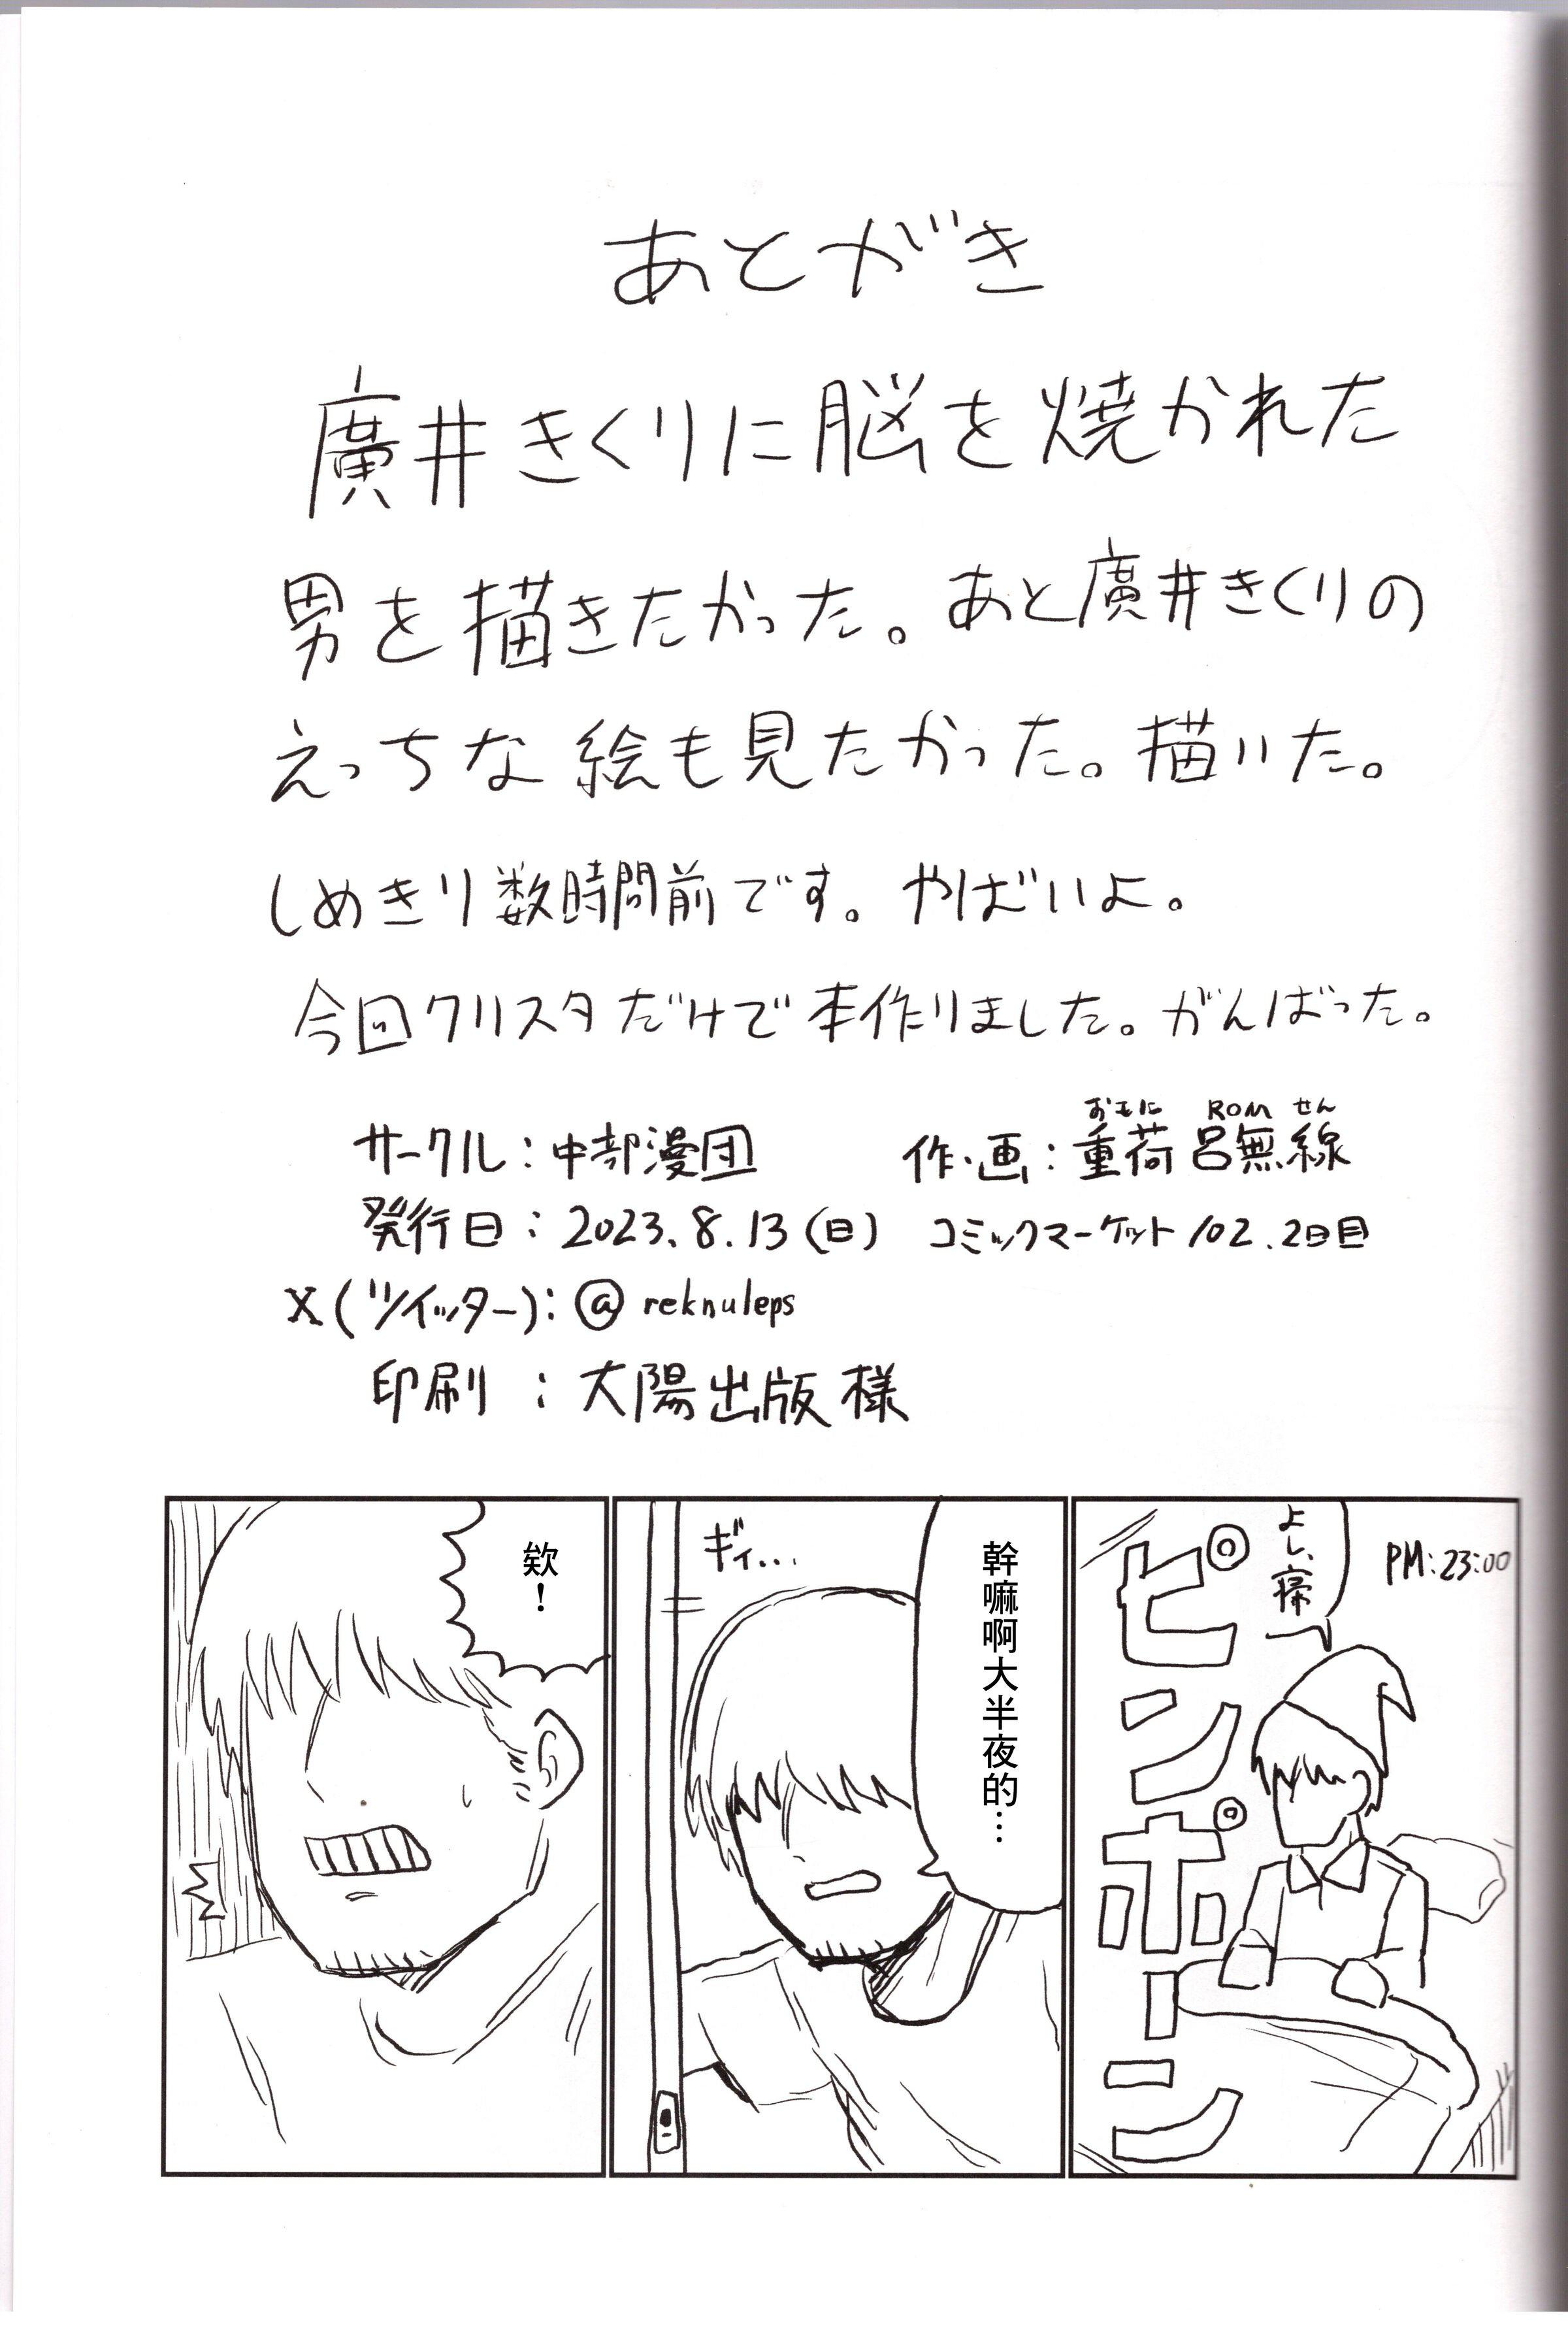 あとがき
廣井きくりに脳を焼かれた
男を描きたかった。あと廣井きくりの
えっちな絵も見たかった。描いた。
しめきり数時間前です。やばいよ。
今回クリスタだけで本作りました。がんばった。
サークル:中部漫団
おもに ROM せん
作・画:重荷 呂無線
発行日:2023.8.13(日) コミックマーケット102.2日目
X(ツイッター):@reknuleps
印刷:大陽出版様
PM:23:00
よし、寝
ピンポーン
幹嘛啊大半夜的…
ギィ…
欸!